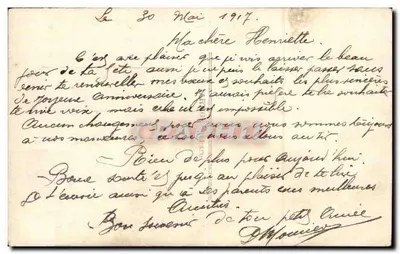 Le 30 Mai 1917.
Ma chère Henriette.
C'est avec plaisir que je vois arriver le beau
jour de ta fête aussi je ne puis le laisser passer sans
venir te renouveler mes vœux et souhaits les plus sincères
de Joyeux Anniversaire. J'aurais préféré te les souhaiter
de vive voix, mais cela est impossible.
Aucun changement pour nous nous sommes toujours
à nos
Rien de plus pour aujourd'hui.
Bonne santé et jusqu'au plaisir de te lire
ainsi qu'à tes parents mes meilleures
Amitiés
Bon souvenir de ton petit Aimée